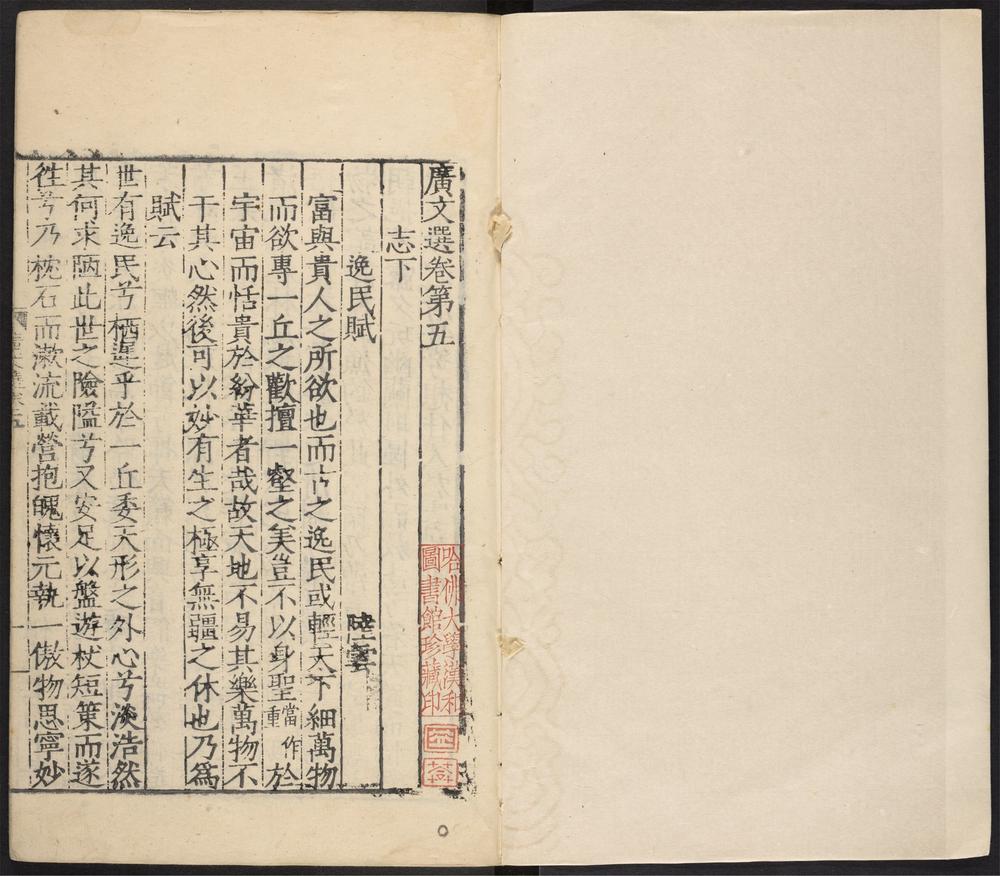 廣文選卷第五
志下
逸民賦 陸雲
富與貴人之所欲也而古之逸民或輕天下細萬物
而欲專一丘之歡擅一壑之美豈不以身聖當作重於
宇宙而恬貴於紛華者哉故天地不易其樂萬物不
干其心然後可以妙有生之極享無疆之休也乃爲
賦云
世有逸民兮栖遲乎於一丘委天形之外心兮淡浩然
其何求陋此世之險隘兮又安足以盤遊杖短策而遂
徃兮乃枕石而漱流載營抱魄懷元執一傲物思寧妙
哈佛大學漢和
圖書館珍藏印